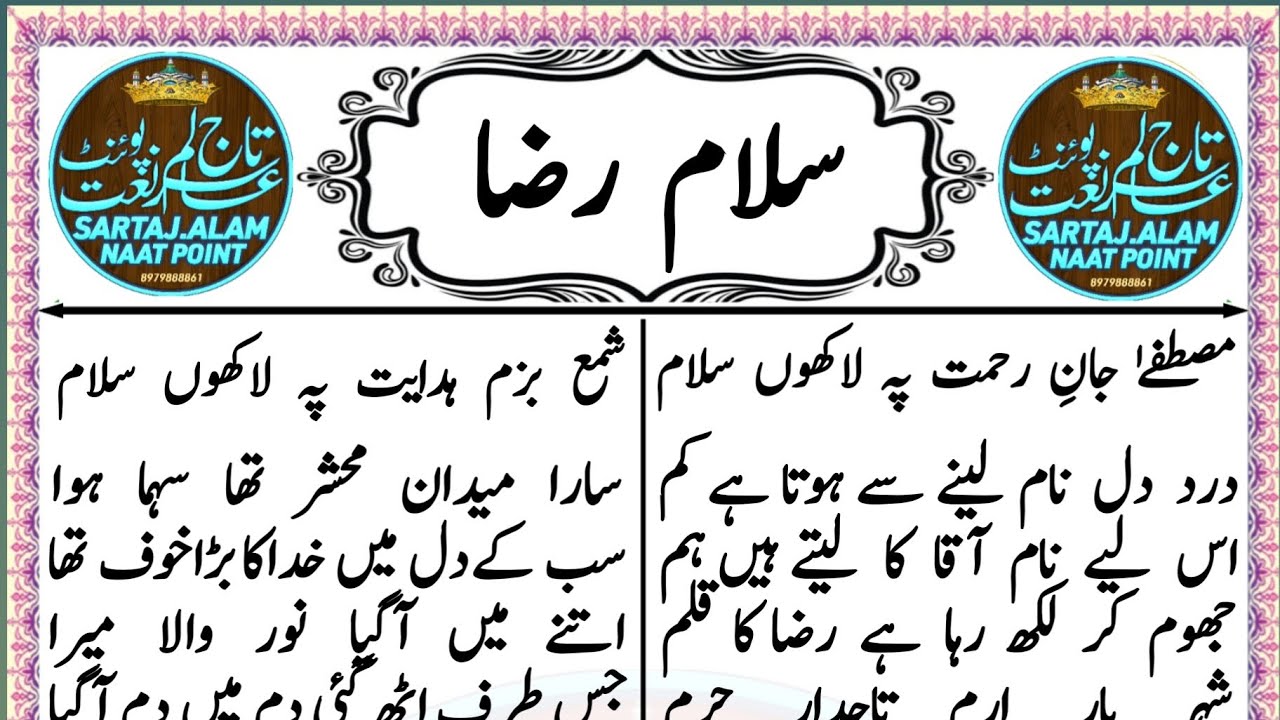 سلام رضا
تاج عالم نعت پوئنٹ
SARTAJ.ALAM
NAAT POINT
8979888861
تاج عالم نعت پوئنٹ
SARTAJ.ALAM
NAAT POINT
8979888861
مصطفےٰ جانِ رحمت پہ لاکھوں سلام
شمع بزم ہدایت پہ لاکھوں سلام
درد دل نام لینے سے ہوتا ہے کم
اس لیے نام آقا کا لیتے ہیں ہم
جھوم کر لکھ رہا ہے رضا کا قلم
شہر یار ارم تاجدار حرم
سارا میدان محشر تھا سہما ہوا
سب کے دل میں خدا کا بڑا خوف تھا
اتنے میں آگیا نور والا میرا
جس طرف اٹھ گئی دم میں دم آگیا